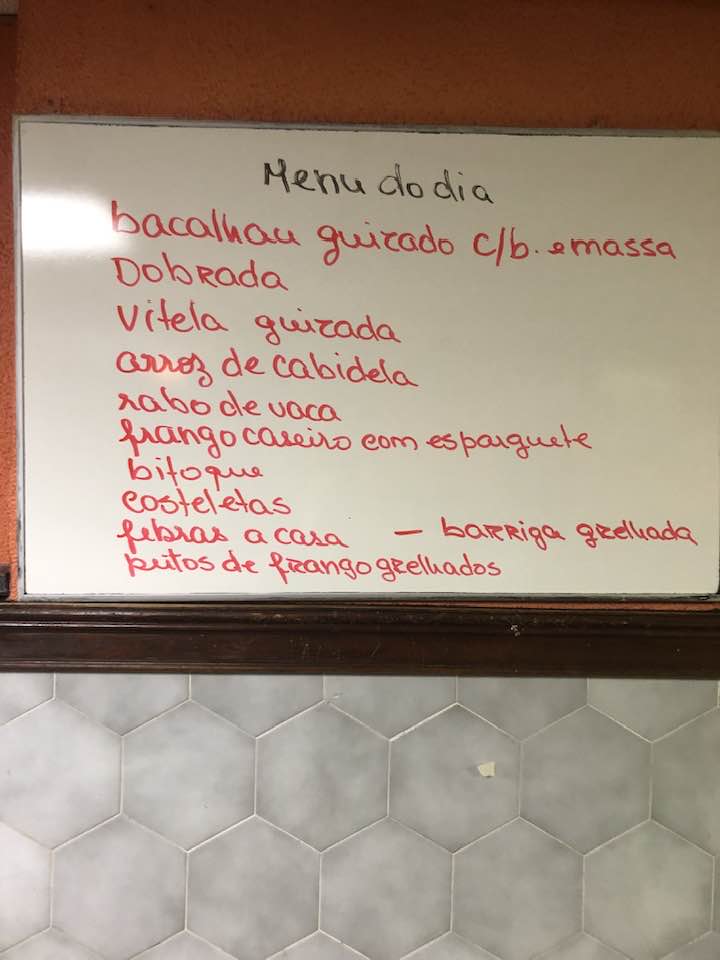 Menu do dia
bacalhau guizado c/b. e massa
DOBRADA
vitela guizada
arroz de cabidela
rabo de vaca
frango caseiro com esparguete
bitoque
costeletas
febras a casa - barriga grelhada
peitos de frango grelhados